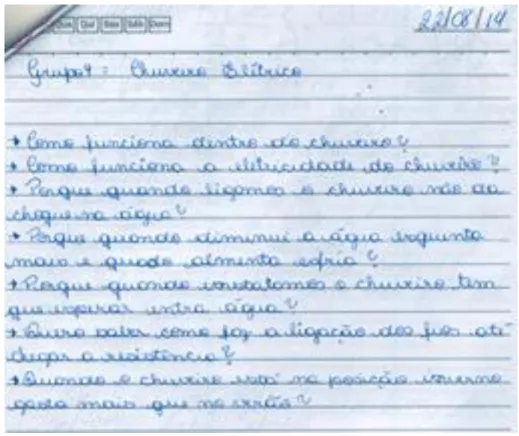 Qua Qui Sex Sáb Dom
22/08/14
Grupo 4 = Chuveiro Elétrico
• Como funciona dentro do chuveiro?
• Como funciona a eletricidade do chuveiro?
• Porque quando ligamos o chuveiro não da
choque na água?
• Porque quando diminui a água esquenta
mais e quado almenta esfria?
• Porque quando instalamos o chuveiro tem
que esperar entra água?
• Quero saber como faz a ligação dos fios até
chegar a resistência?
• Quando o chuveiro está na posição inverno
gasta mais que no verão?